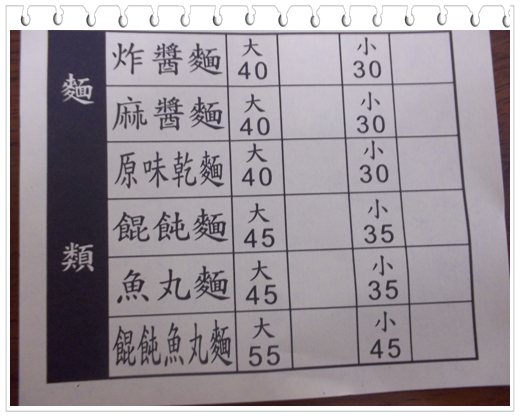 麵類
炸醬麵 大 40 小 30
麻醬麵 大 40 小 30
原味乾麵 大 40 小 30
餛飩麵 大 45 小 35
魚丸麵 大 45 小 35
餛飩魚丸麵 大 55 小 45